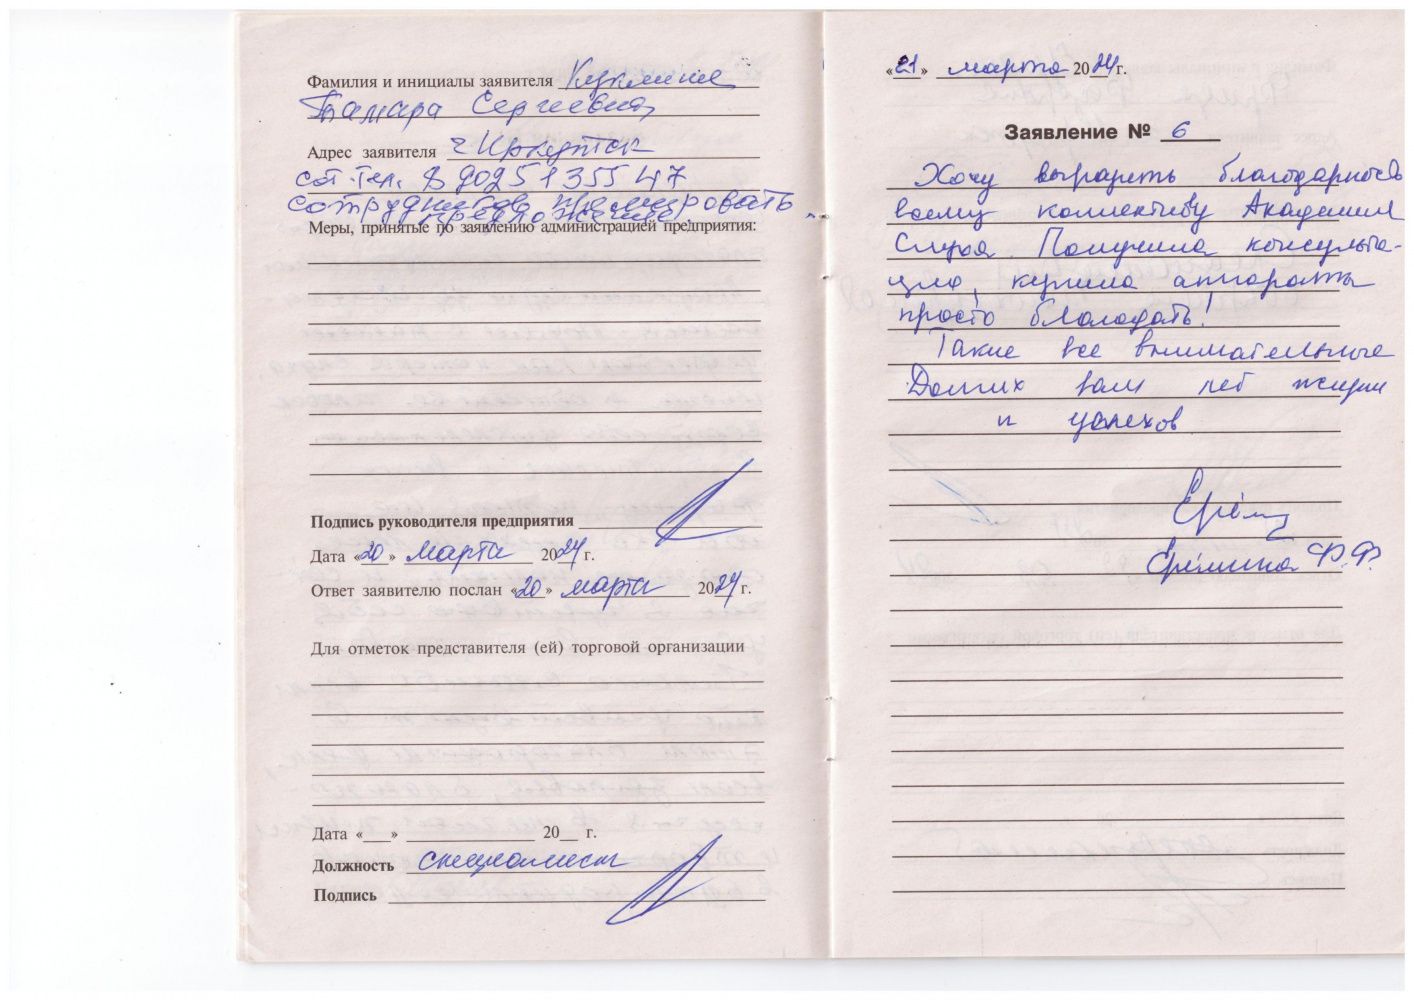 Фамилия и инициалы заявителя
Тамара Сергеевна
Адрес заявителя г Иркутск
сот. тел. 8 9025135547
сотрудников премировать
предложение
Меры, принятые по заявлению администрацией предприятия:
Подпись руководителя предприятия
Дата «20» марта 2024 г.
Ответ заявителю послан «20» марта 2024 г.
Для отметок представителя (ей) торговой организации
Дата «__» 20__ г.
Должность специалист
Подпись
«21» марта 2024 г.
Заявление № 6
Хочу выразить благодарность
всему коллективу Академии
Слуха Получила консульта-
цию, купила аппараты
просто благодать!
Такие все внимательные
Долгих вам лет жизни
и успехов
Ерёмина Ф.Ф.